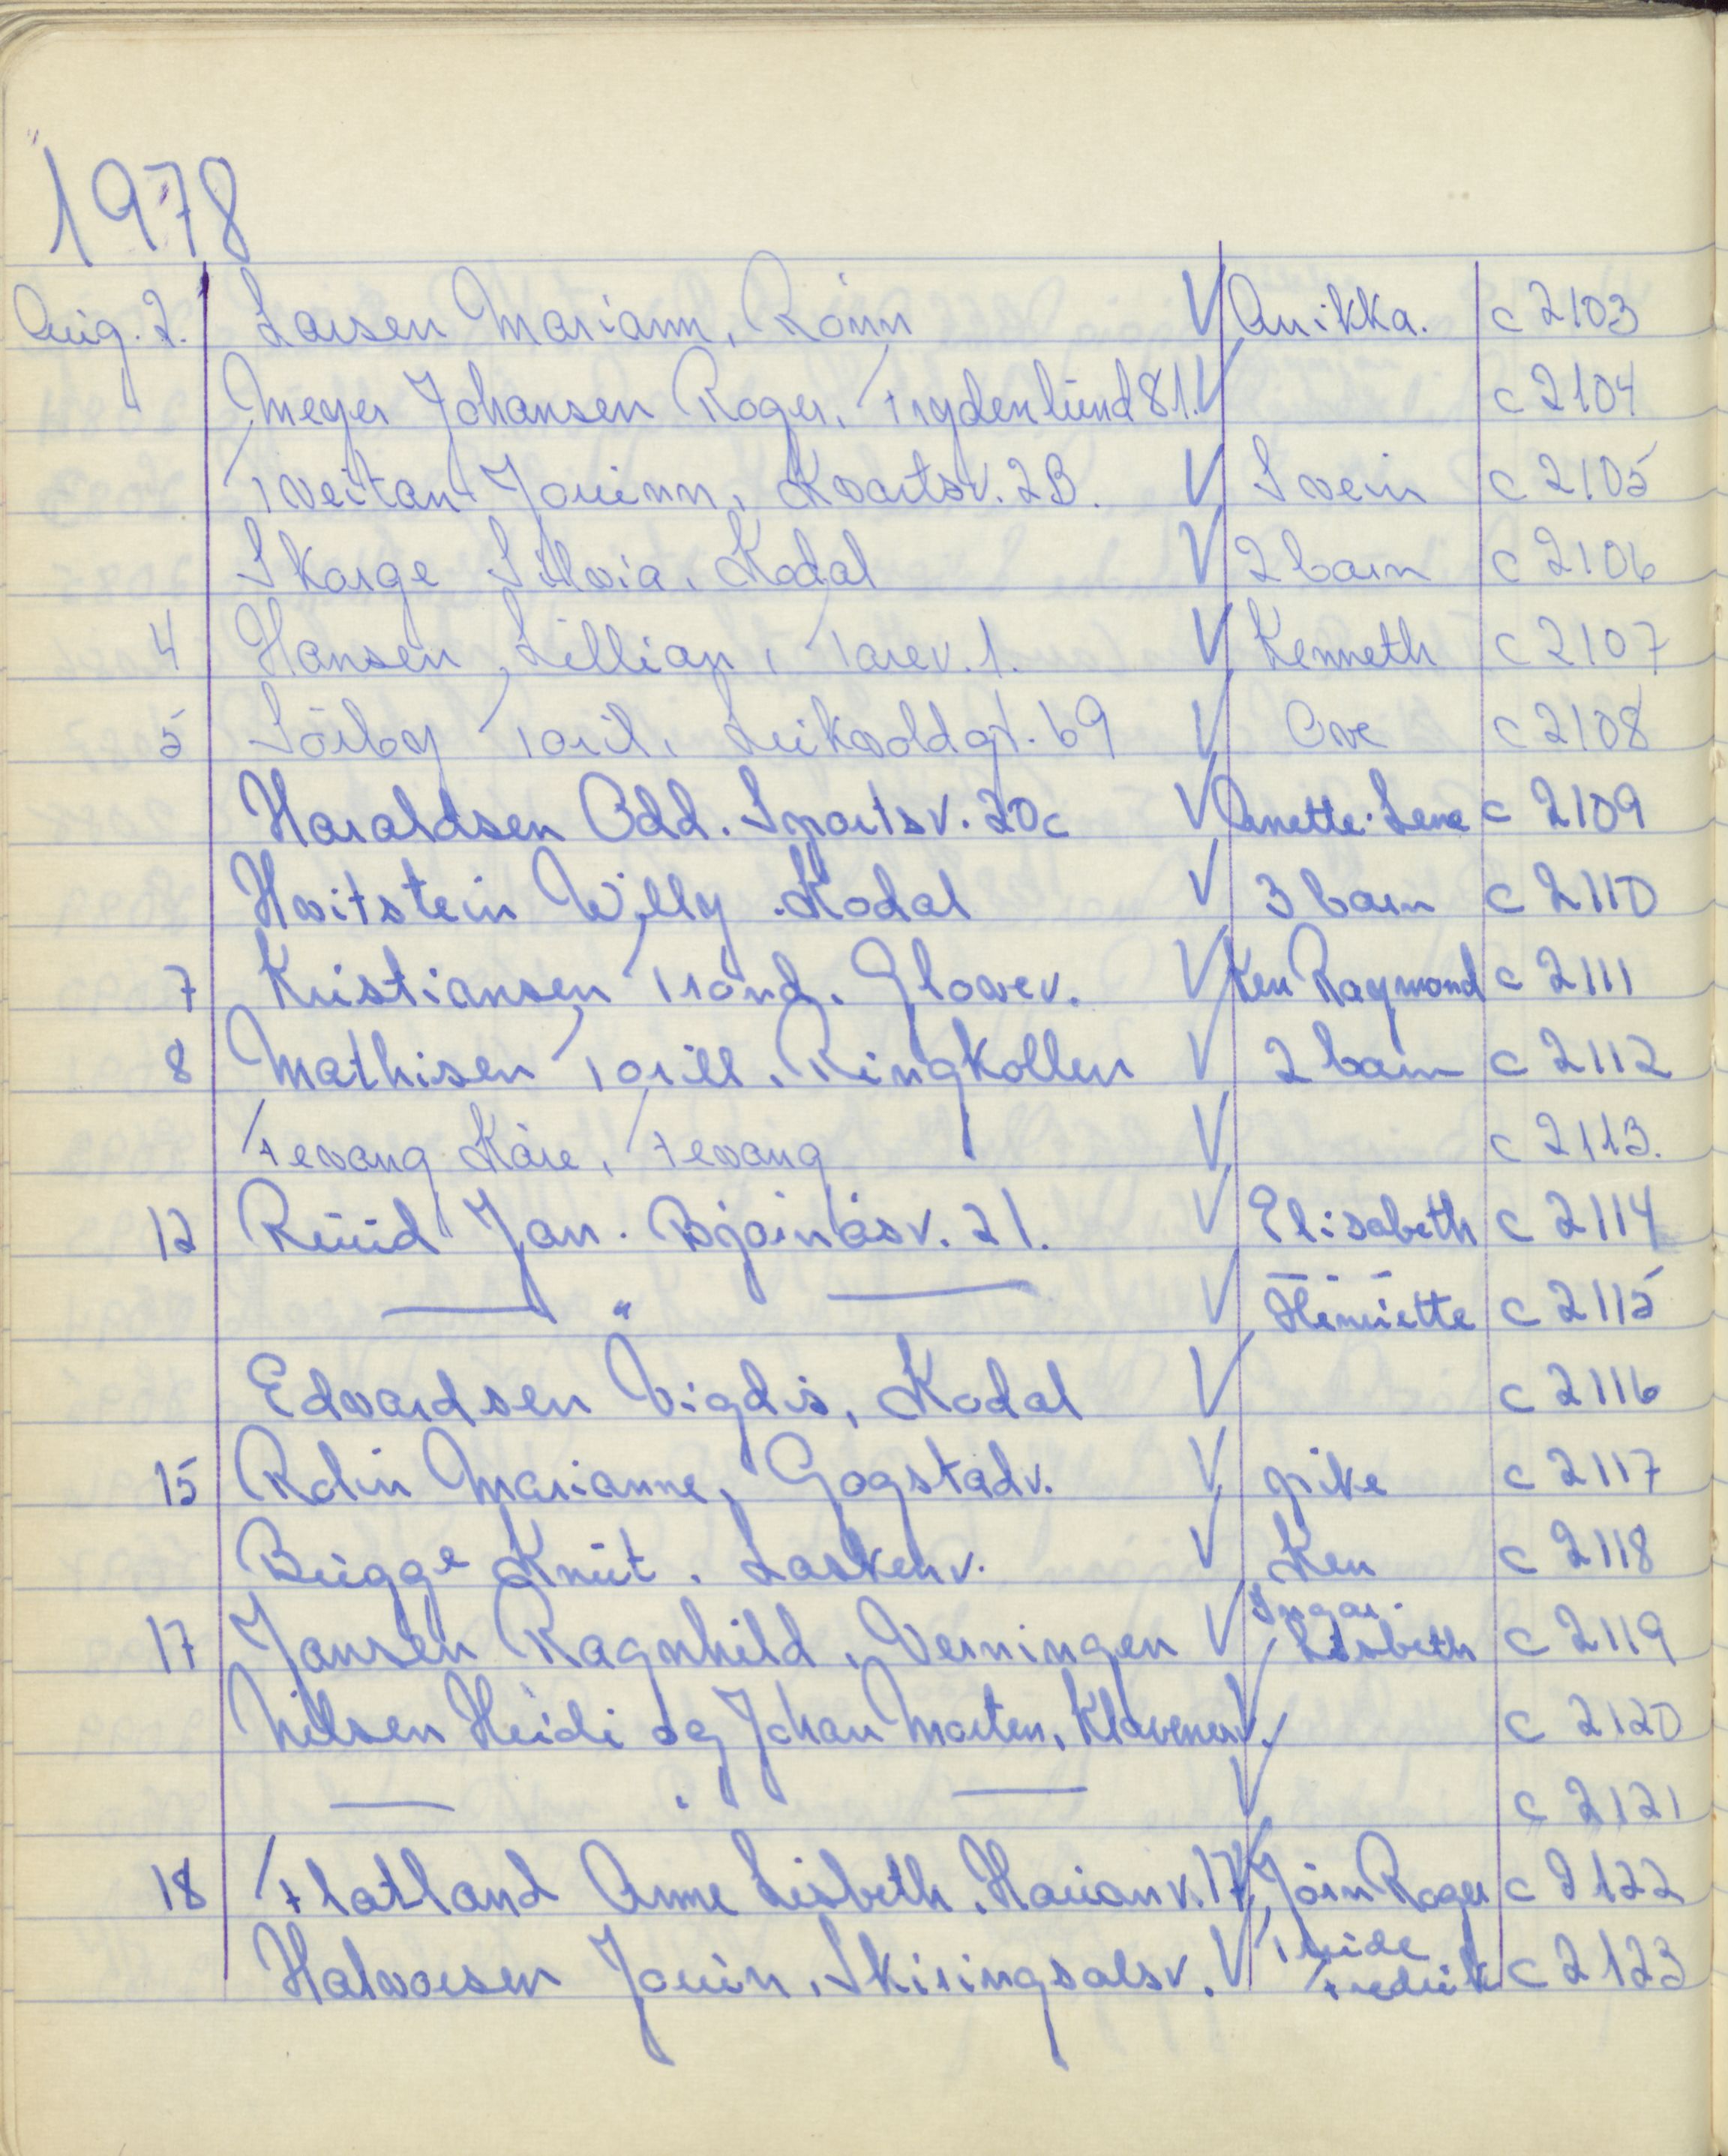 1978
Aug. 2. Larsen Mariann, Rönn V Anikka. c 2103
Meyer Johansen Roger, Frydenlund 81. V c 2104
Tveitan Jorunn, Kvartsv. 2B. V Svein c 2105
Skorge Silvia, Kodal V 2 barn c 2106
4 Hansen Lillian, Torev. 1. V Kenneth c 2107
5 Sörby Toril, Leikvoldgt. 69 V Ove c 2108
Haraldsen Odd. Sportsv. 20c V Anette-Lene c 2109
Hvitstein Willy. Kodal V 3 barn c 2110
7 Kristiansen Trond. Glovev. V Ken Raymond c 2111
8 Mathisen Torill. Ringkollen V 2 barn c 2112
Fevang Kåre, Fevang V c 2113.
12 Ruud Jan. Bjørnåsv. 21. V Elisabeth c 2114
— " — V Henriette c 2115
Edvardsen Vigdis, Kodal V c 2116
15 Rolin Marianne, Gogstadv. V pike c 2117
Bugge Knut. Laskenv. V Ken c 2118
17 Jansen Ragnhild, Verningen V Ingar. Lisbeth c 2119
Nilsen Heidi og Johan Morten, Klavenesv. V c 2120
— " — V c 2121
18 Flatland Anne Lisbeth, Havnav. 17 V Jörn Roger c 2122
Halvorsen Jorun, Skiringsalsv. V Fredrik c 2123